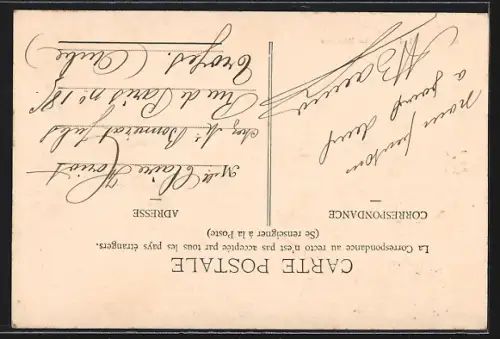 CARTE POSTALE
La Correspondance au recto n'est pas acceptée par tous les pays étrangers.
(Se renseigner à la Poste)
CORRESPONDANCE
nous pensons
a
ADRESSE
Mlle Claire
chez Mr
Rue de Paris no 18
Troyes. (Aube)